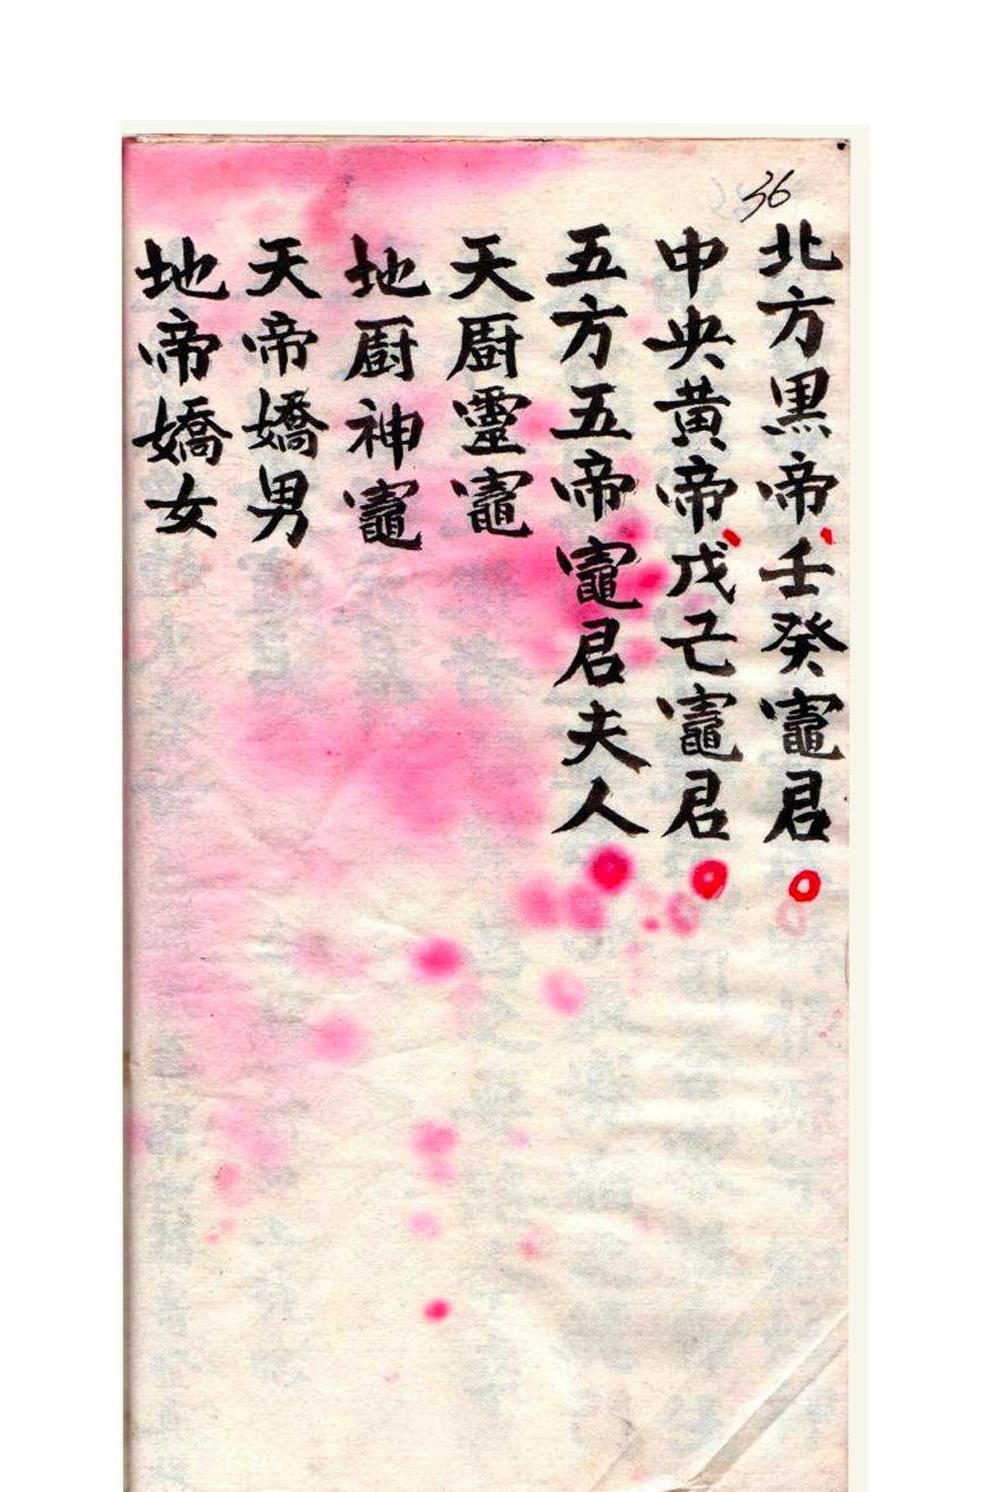 36
北方黒帝壬癸竈君
中央黃帝戊己竈君
五方五帝竈君夫人
天厨靈竈
地厨神竈
天帝嬌男
地帝嬌女